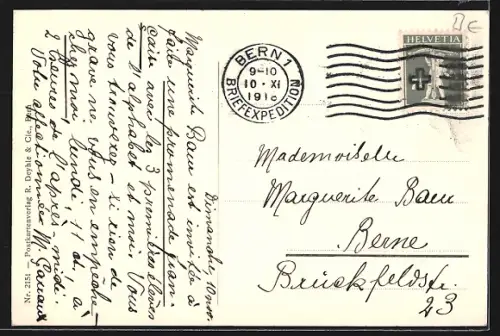 Dimanche, 10 nov.
Marguerite Baur est invitée à
faire une promenade fran-
çaise avec les 3 premières élèves
de l'alphabet et moi. Vous
vous trouverez – si rien de
grave ne vous en empêche –
chez moi, lundi, 11 ct, à
2 heures de l'après-midi.
Votre affectionnée M.
Nr. 2151 – Postkartenverlag R. Deyhle & Cie., Bern
BERN 1
9-10
10·XI
191
BRIEFEXPEDITION
HELVETIA
Mademoiselle
Marguerite Baur
Berne
Brückfeldstr.
23